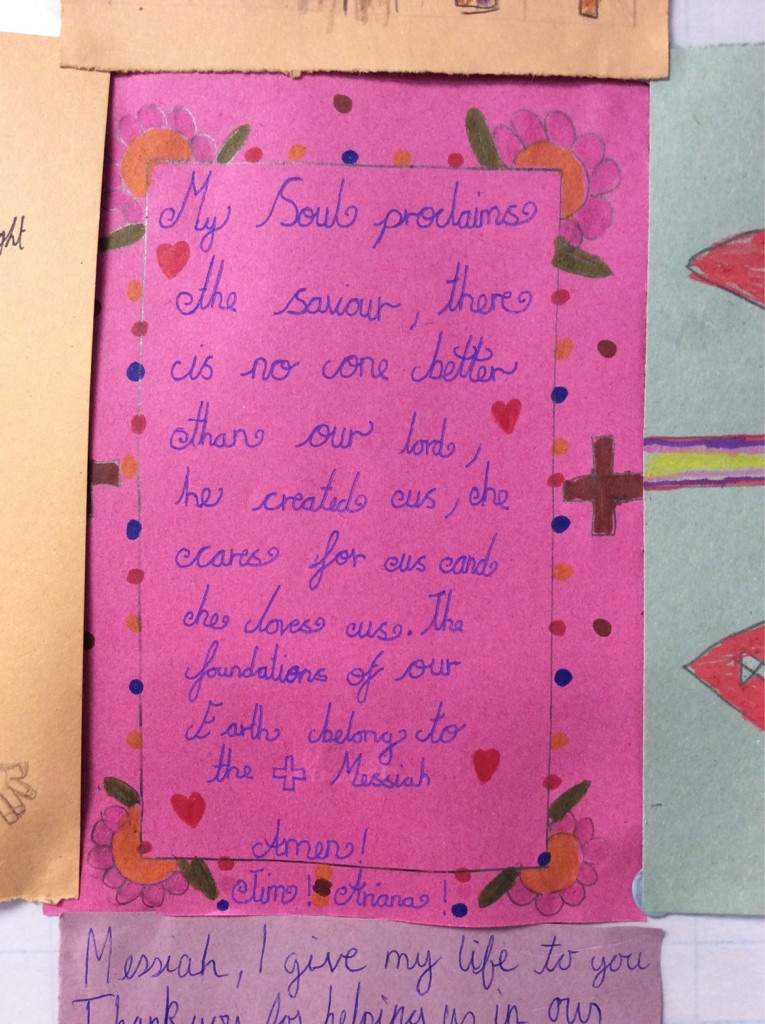 ght
My Soul proclaims
the saviour, there
is no one better
than our lord,
he created us, he
cares for us and
he loves us. The
foundations of our
Earth belong to
the Messiah
Amen!
Jim! Ariana!
Messiah, I give my life to you
Thank you for helping us in our